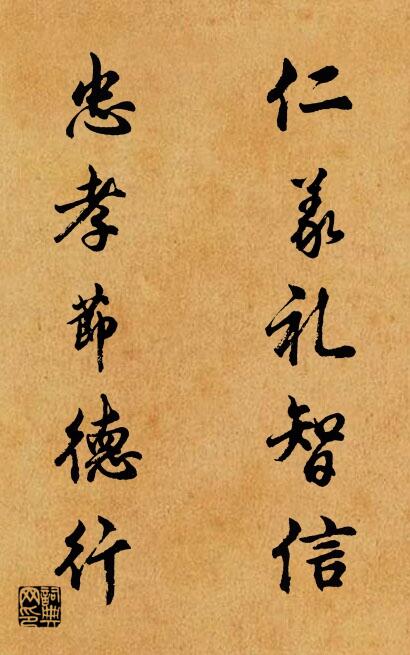 仁义礼智信
忠孝節德行
詞典网印